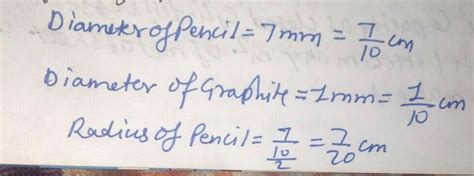 Diameter of Pencil = 7mm = 7/10 cm
Diameter of Graphite = 1mm = 1/10 cm
Radius of Pencil = 7/10/2 = 7/20 cm